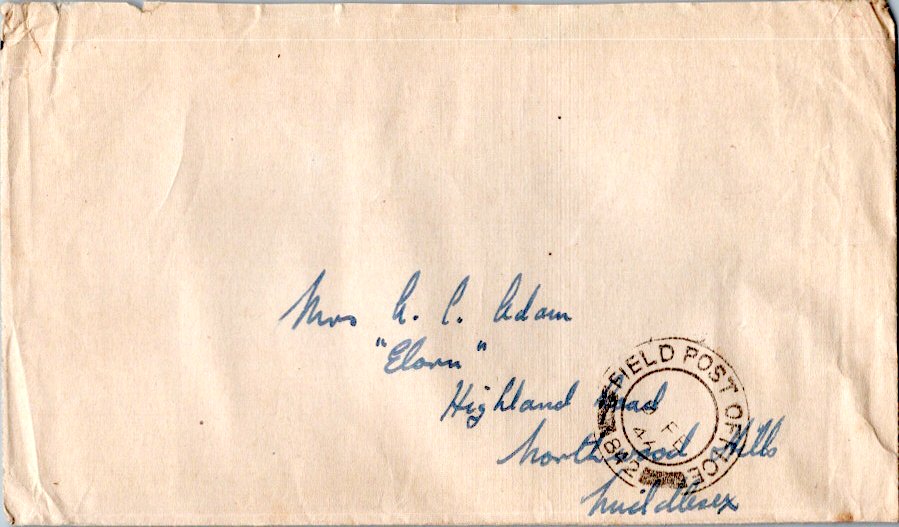 Mrs A. C. Adam
"Elorn"
Highland Road
Northwood Hills
Middlesex
FIELD POST OFFICE
842
FE
44